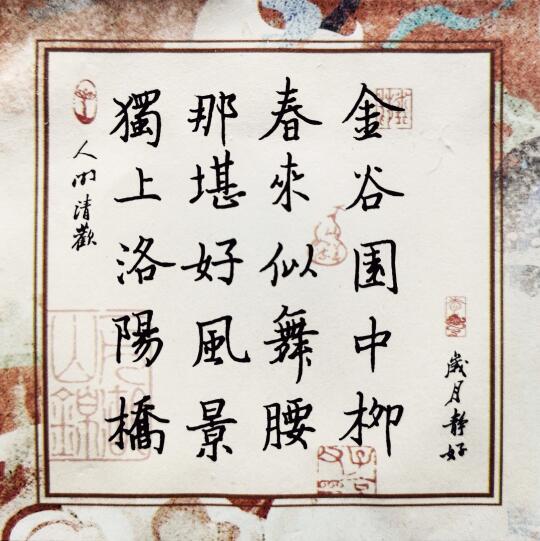 金谷園中柳
春來似舞腰
那堪好風景
獨上洛陽橋
歲月靜好
人間清歡